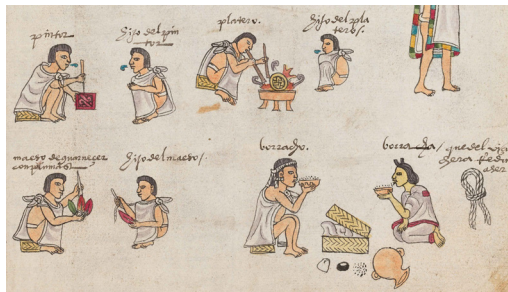 pintor
hijo del pin
tor
platero.
hijo del pla
tero/.
maeso de guarneçer
con plumas
hijo del maeso/.
borracho.
borracha/ que del vi